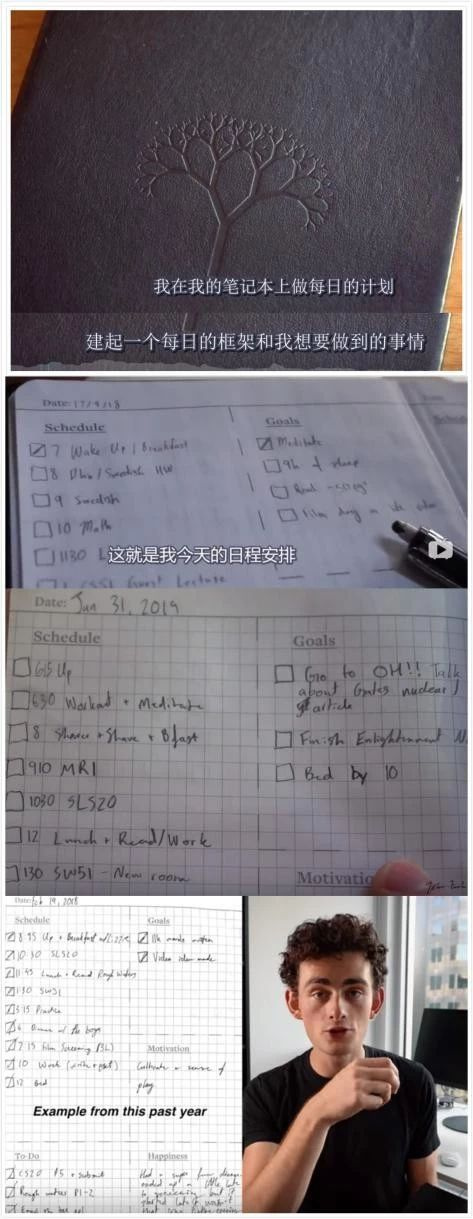 我在我的笔记本上做每日的计划
建起一个每日的框架和我想要做到的事情
Date: 17/9/18
Schedule
7 Wake Up / Breakfast
8 / Swedish HW
9 Swedish
10 Math
1130 L
Guest Lecture
Goals
Meditate
9h of sleep
Read
Film day in the
这就是我今天的日程安排
Date: Jan 31, 2019
Schedule
615 Up
630 Workout + Meditate
8 Shower + Shave + Bfast
910 MR1
1030 SLS20
12 Lunch + Read/Work
130 SW51 - New room
Goals
Go to OH!! Talk
about Gates nuclear
article
Finish Enlightenment
Bed by 10
Motivatio
Date: Feb 19, 2018
Schedule
8 45 Up + Breakfast
10 30 SLS20
11 45 Lunch + Read Rough Waters
1 30 SW51
3 15 Practice
6 Dinner w/ the boys
7 15 Film Screening
10 Work (write + pset)
12 Bed
Goals
Video idea made
Motivation
Cultivate a sense of
play
Example from this past year
To-Do
CS20 P5 + submit
Rough waters P1-2
Happiness
Had a super fun